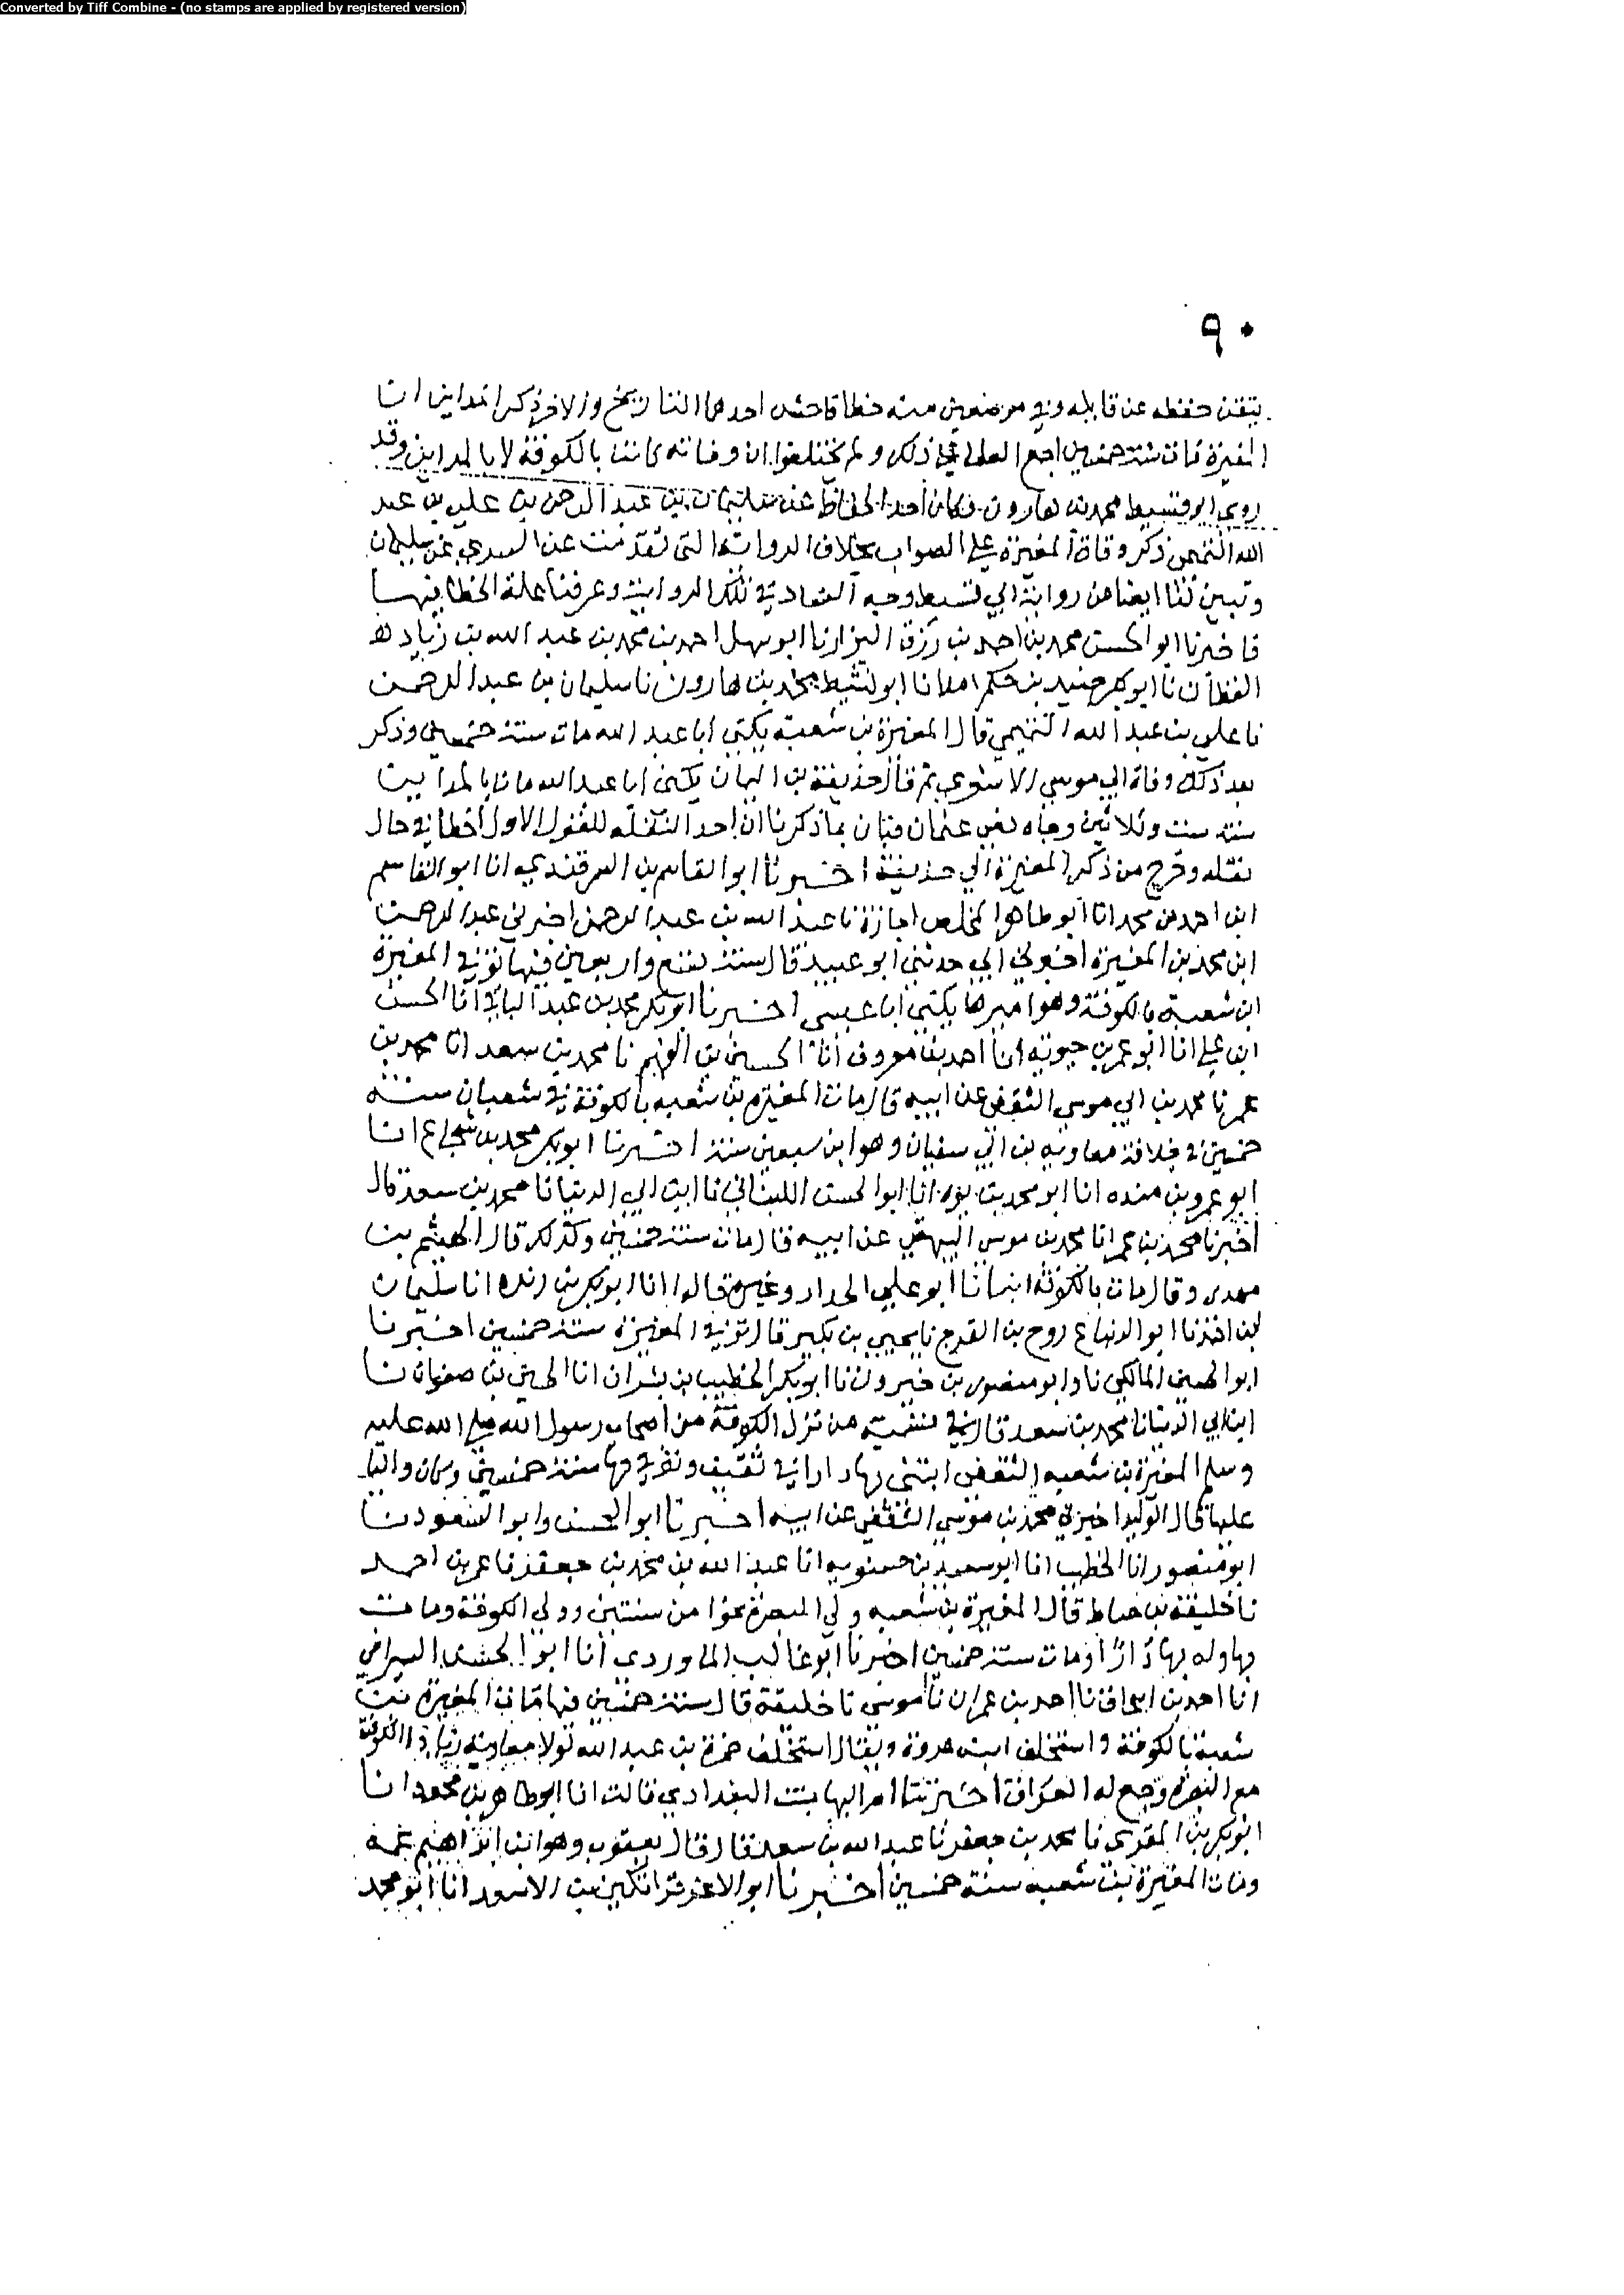 Converted by Tiff Combine - (no stamps are applied by registered version)
٩٠
يتقن حفظه عن قايله وفي موضعين منه خطا فاحش احدهما التاريخ والاخر ذكر المداين انا
المغيرة مات سنة خمسين اجمع العلماء على ذلك ولم يختلفوا ان وفاته كانت بالكوفة لا بالمداين وقد
روى ابو نشيط محمد بن هارون وكان احد الحفاظ عن سليمان بن عبد الرحمن بن علي بن عبد
الله التميمي ذكر وفاة المغيرة على الصواب بخلاف الرواية التي تقدمت عن السري عن سليمان
وتبين لنا ايضا من رواية ابي نشيط وجه الفساد في تلك الرواية وعرفنا علة الخطا فيها
فاخبرنا ابو الحسن محمد بن احمد بن رزق البزار نا ابو سهل احمد بن محمد بن عبد الله بن زياد
القطان نا ابو بكر جنيد بن حكم املانا ابو نشيط محمد بن هارون نا سليمان بن عبد الرحمن
نا علي بن عبد الله التميمي قال المغيرة بن شعبة يكنى ابا عبد الله مات سنة خمسين وذكر
بعد ذلك وفاة ابي موسى الاشعري ثم قال حذيفة بن اليمان يكنى ابا عبد الله مات بالمداين
سنة ست وثلاثين وجاه نعي عثمان فبان بما ذكرنا ان احد النقلة للقول الاول اخطا في حال
نقله وخرج من ذكر المغيرة الي حذيفة اخبرنا ابو القاسم بن السمرقندي انا ابو القاسم
ابن احمد بن محمد انا ابو طاهر المخلص اجازة نا عبد الله بن عبد الرحمن اخبرني عبد الرحمن
ابن محمد بن المغيرة اخبرني ابي حدثني ابو عبيد قال سنة تسع واربعين فيها توفي المغيرة
ابن شعبة بالكوفة وهو اميرها يكنى ابا عيسى اخبرنا ابو بكر محمد بن عبد الباقي انا الحسن
ابن علي انا ابو عمر بن حيويه انا احمد بن معروف انا الحسين بن الفهم نا محمد بن سعد انا محمد بن
عمر نا محمد بن ابي موسى الثقفي عن ابيه قال مات المغيرة بن شعبه بالكوفة في شعبان سنة
خمسين في خلافة معاويه بن ابي سفيان وهو ابن سبعين سنة اخبرنا ابو بكر محمد بن شجاع انا
ابو عمرو بن منده انا ابو محمد بن يوه انا ابو الحسن اللبناني نا ابن ابي الدنيا نا محمد بن سعد قال
اخبرنا محمد بن عمر انا محمد بن موسى عن ابيه قال مات سنة خمسين وكذلك قال الهيثم بن
وقال مات بالكوفة انبانا ابو علي الحداد وغيره قالوا انا ابو بكر بن انا سليمان
بن احمد نا ابو الزنباع روح بن الفرج نا يحيى بن بكير قال توفي المغيرة سنة خمسين اخبرنا
ابو الحسن المالكي نا وابو منصور بن خيرون نا ابو بكر الخطيب بن بشران انا الحسين بن صفوان نا
ابن ابي الدنيا نا محمد بن سعد قال في تسمية من نزل الكوفة من اصحاب رسول الله صلى الله عليه
وسلم المغيرة بن شعبه الثقفي ابتنى بها دارا في ثقيف وتوفي بها سنة خمسين وكان واليا
عليها قال الوليد اخبرني محمد بن موسى الثقفي عن ابيه اخبرنا ابو الحسن وابو السعود نا
ابو منصور انا الخطيب انا ابو سعيد بن حسنويه انا عبد الله بن محمد بن جعفر نا عمر بن احمد
نا خليفة بن خياط قال المغيرة بن شعبه ولي البصرة نحوا من سنتين وولي الكوفة ومات
بها وله بها دارا ومات سنة خمسين اخبرنا ابو غالب الماوردي انا ابو الحسن السيرافي
انا احمد بن اسحاق نا احمد بن عمران نا موسى نا خليفة قال سنة خمسين فيها مات المغيرة بن
شعبة بالكوفة واستخلف ابنه عروة ويقال استخلف حمزة بن عبد الله تولا معاوية زياد الكوفة
مع البصرة وجمع له العراق اخبرتنا ام البها بنت البغدادي قالت انا ابو طاهر بن محمود انا
ابو بكر بن المقرئ نا محمد بن جعفر نا عبد الله بن سعد قال قال يعقوب وهو ابن ابراهيم عمه
ومات المغيرة بن شعبه سنة خمسين اخبرنا ابو الاعز قراتكين بن الاسعد انا ابو محمد